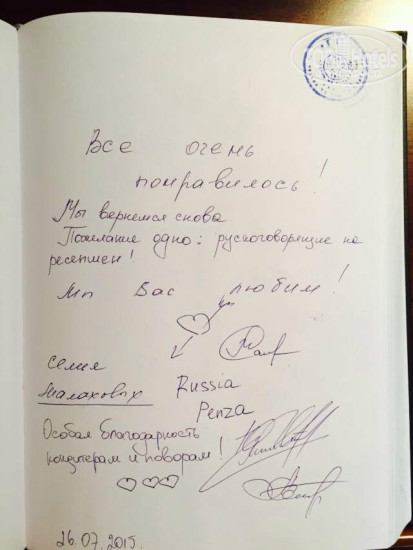 Все очень
понравилось!
Мы вернемся снова
Пожелание одно: русковорящие на
ресепшен!
Мы Вас любим!
семия
Малаховых
Russia
Penza
Особая благодарность
кондитерам и поворам!
26.07.2015.